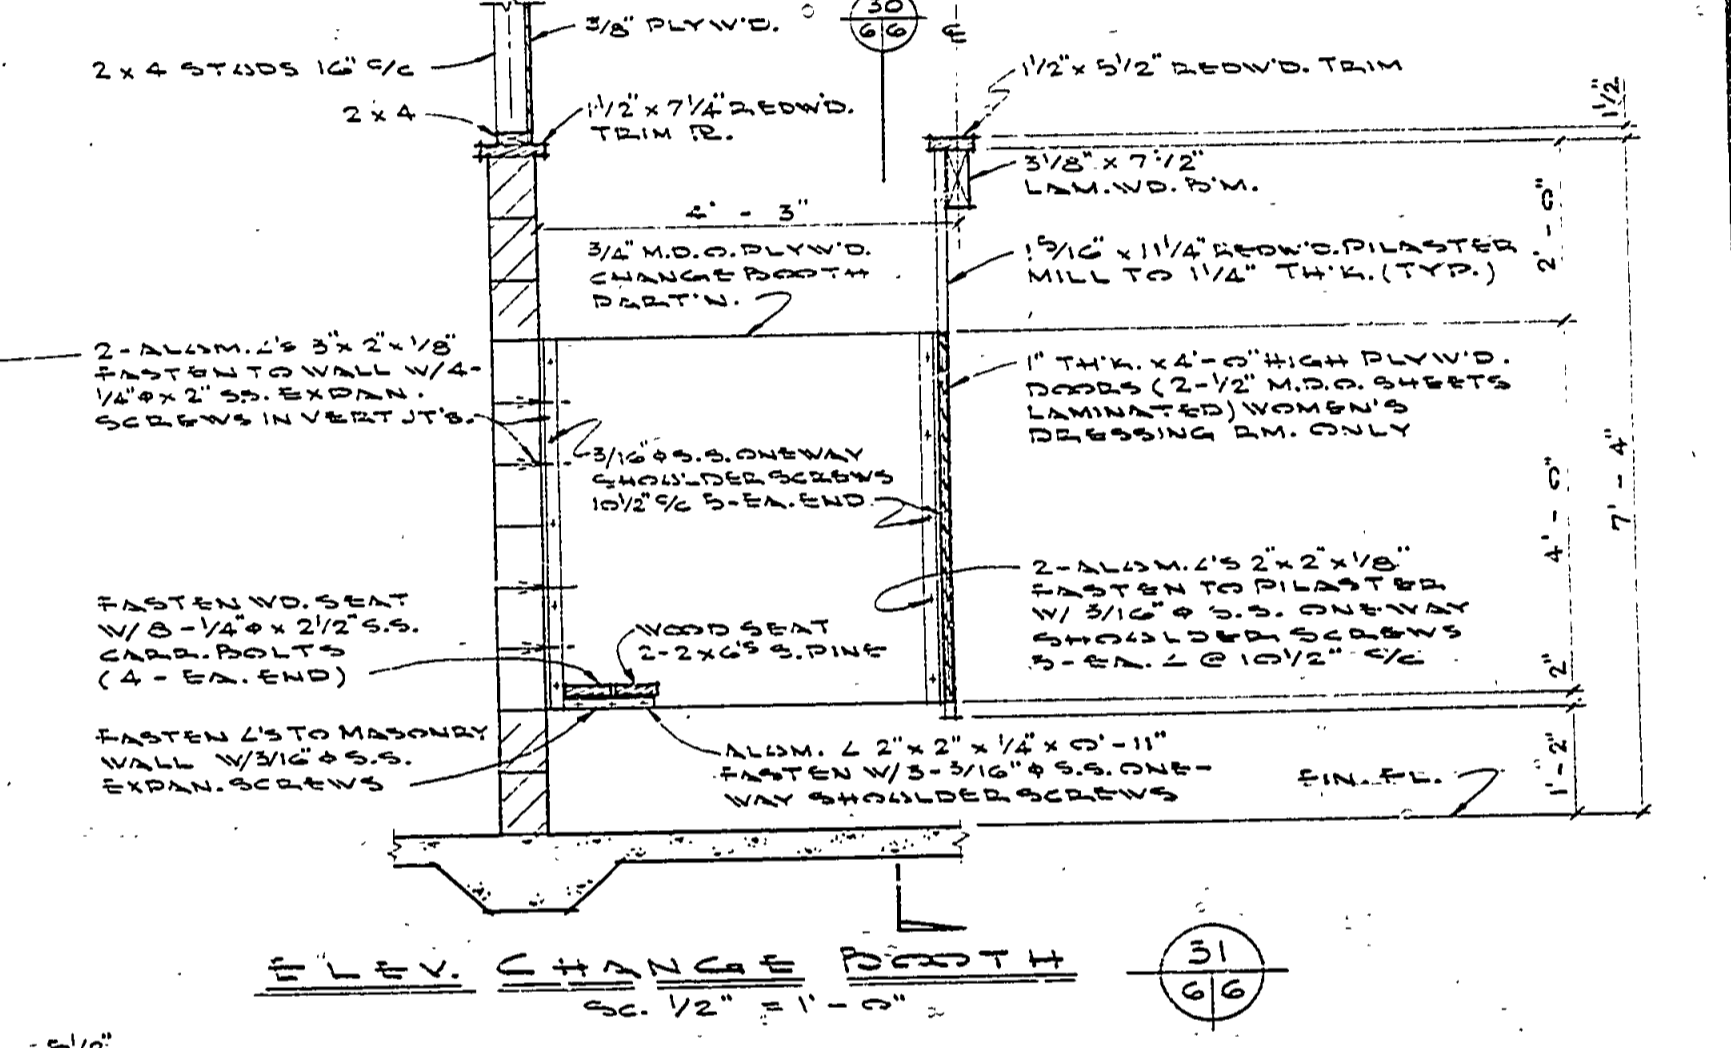 3/8" PLYW'D.
2 x 4 STUDS 16" c/c
2 x 4
1 1/2" x 7 1/4" REDW'D.
TRIM PL.
30
6 6
℄
1 1/2" x 5 1/2" REDW'D. TRIM
1 1/2
3 1/8" x 7 1/2"
LAM. WD. B'M.
4' - 3"
3/4" M.D.O. PLYW'D.
CHANGE BOOTH
PART'N.
1 5/16" x 11 1/4" REDW'D. PILASTER
MILL TO 1 1/4" TH'K. (TYP.)
2' - 0"
2 - ALUM. ∠'S 3" x 2" x 1/8"
FASTEN TO WALL W/ 4-
1/4" ϕ x 2" S.S. EXPAN.
SCREWS IN VERT JT'S.
1" TH'K. x 4'-0" HIGH PLYW'D.
DOORS (2-1/2" M.D.O. SHEETS
LAMINATED) WOMEN'S
DRESSING RM. ONLY
3/16" ϕ S.S. ONEWAY
SHOULDER SCREWS
10 1/2" c/c 5-EA. END
4' - 0"
7' - 4"
2 - ALUM. ∠'S 2" x 2" x 1/8"
FASTEN TO PILASTER
W/ 3/16" ϕ S.S. ONE-WAY
SHOULDER SCREWS
5 - EA. ∠ @ 10 1/2" c/c
FASTEN WD. SEAT
W/ 8 - 1/4" ϕ x 2 1/2" S.S.
CARR. BOLTS
(4 - EA. END)
WOOD SEAT
2 - 2 x 6'S S. PINE
2"
FASTEN ∠'S TO MASONRY
WALL W/ 3/16" ϕ S.S.
EXPAN. SCREWS
ALUM. ∠ 2" x 2" x 1/4" x 0'-11"
FASTEN W/ 3 - 3/16" ϕ S.S. ONE-
WAY SHOULDER SCREWS
FIN. FL.
1' - 2"
ELEV. CHANGE BOOTH
SC. 1/2" = 1' - 0"
31
6 6